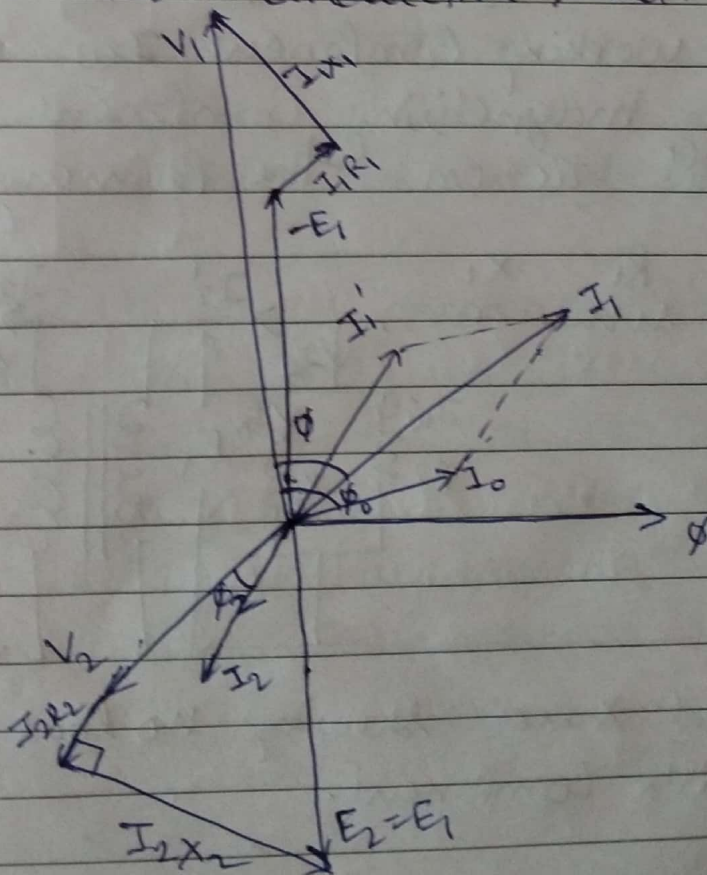 V₁
I₁X₁
I₁R₁
-E₁
I₁'
I₁
ϕ
ϕ₀
I₀
ϕ
ϕ₂
V₂
I₂
I₂R₂
I₂X₂
E₂=E₁